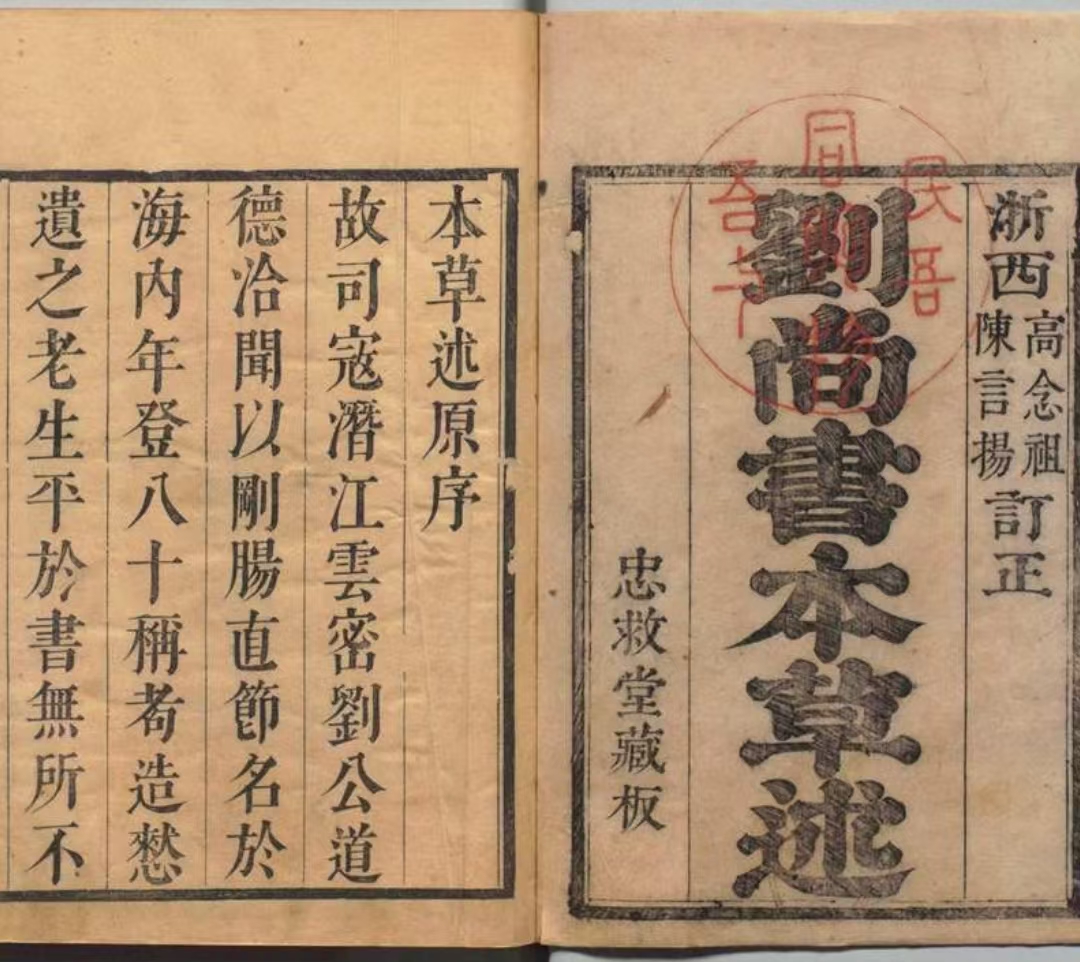 浙西高念祖陳言揚訂正
劉尚書本草述
忠救堂藏板
本草述原序
故司寇潛江雲密劉公道
德洽聞以剛腸直節名於
海內年登八十稱耇造憗
遺之老生平於書無所不